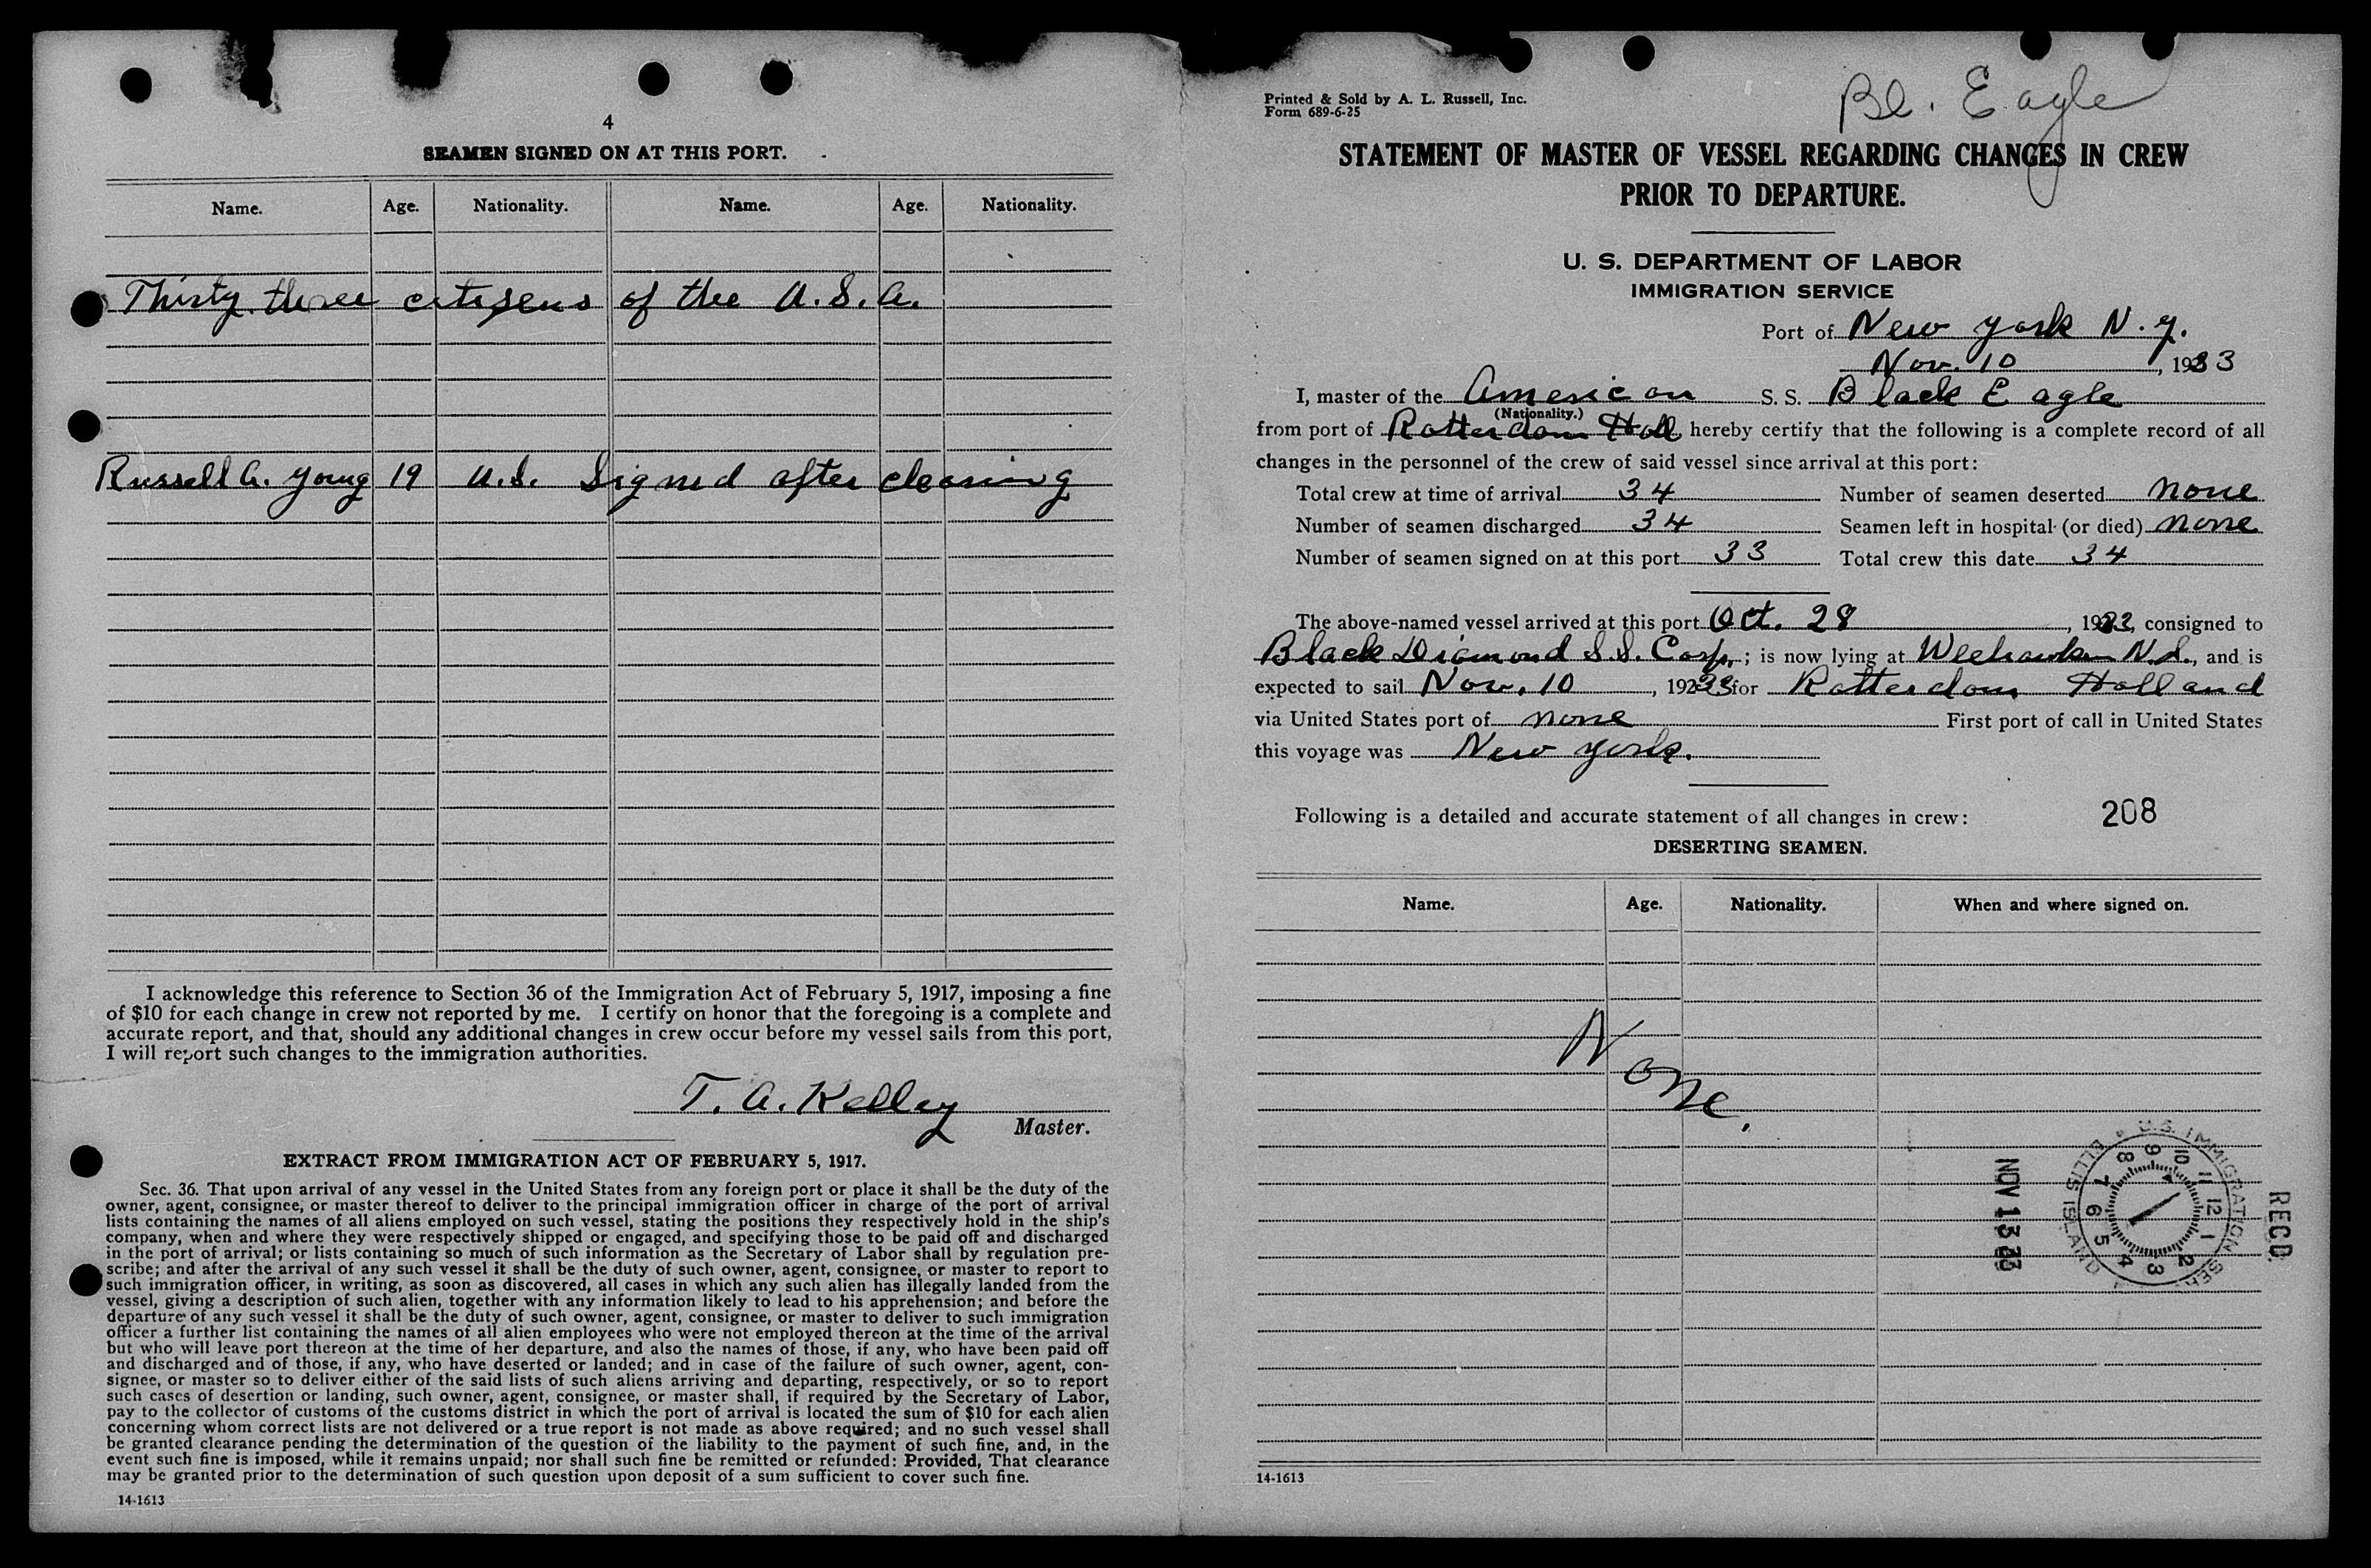 4
SEAMEN SIGNED ON AT THIS PORT.
Name. Age. Nationality. Name. Age. Nationality.
Thirty three citizens of the U.S.A.
Russell A. Young 19 U.S. Signed after clearing
I acknowledge this reference to Section 36 of the Immigration Act of February 5, 1917, imposing a fine
of $10 for each change in crew not reported by me. I certify on honor that the foregoing is a complete and
accurate report, and that, should any additional changes in crew occur before my vessel sails from this port,
I will report such changes to the immigration authorities.
T. A. Kelley
Master.
EXTRACT FROM IMMIGRATION ACT OF FEBRUARY 5, 1917.
Sec. 36. That upon arrival of any vessel in the United States from any foreign port or place it shall be the duty of the
owner, agent, consignee, or master thereof to deliver to the principal immigration officer in charge of the port of arrival
lists containing the names of all aliens employed on such vessel, stating the positions they respectively hold in the ship's
company, when and where they were respectively shipped or engaged, and specifying those to be paid off and discharged
in the port of arrival; or lists containing so much of such information as the Secretary of Labor shall by regulation pre-
scribe; and after the arrival of any such vessel it shall be the duty of such owner, agent, consignee, or master to report to
such immigration officer, in writing, as soon as discovered, all cases in which any such alien has illegally landed from the
vessel, giving a description of such alien, together with any information likely to lead to his apprehension; and before the
departure of any such vessel it shall be the duty of such owner, agent, consignee, or master to deliver to such immigration
officer a further list containing the names of all alien employees who were not employed thereon at the time of the arrival
but who will leave port thereon at the time of her departure, and also the names of those, if any, who have been paid off
and discharged and of those, if any, who have deserted or landed; and in case of the failure of such owner, agent, con-
signee, or master so to deliver either of the said lists of such aliens arriving and departing, respectively, or so to report
such cases of desertion or landing, such owner, agent, consignee, or master shall, if required by the Secretary of Labor,
pay to the collector of customs of the customs district in which the port of arrival is located the sum of $10 for each alien
concerning whom correct lists are not delivered or a true report is not made as above required; and no such vessel shall
be granted clearance pending the determination of the question of the liability to the payment of such fine, and, in the
event such fine is imposed, while it remains unpaid; nor shall such fine be remitted or refunded: Provided, That clearance
may be granted prior to the determination of such question upon deposit of a sum sufficient to cover such fine.
14-1613
Printed & Sold by A. L. Russell, Inc.
Form 689-6-25
Bl. Eagle
STATEMENT OF MASTER OF VESSEL REGARDING CHANGES IN CREW
PRIOR TO DEPARTURE.
U. S. DEPARTMENT OF LABOR
IMMIGRATION SERVICE
Port of New York N.Y.
Nov. 10, 1933
I, master of the American S. S. Black Eagle
(Nationality.)
from port of Rotterdam Holl, hereby certify that the following is a complete record of all
changes in the personnel of the crew of said vessel since arrival at this port:
Total crew at time of arrival 34 Number of seamen deserted none
Number of seamen discharged 34 Seamen left in hospital (or died) none
Number of seamen signed on at this port 33 Total crew this date 34
The above-named vessel arrived at this port Oct. 28, 1933, consigned to
Black Diamond S.S. Corp.; is now lying at Weehawken N.J., and is
expected to sail Nov. 10, 1933 for Rotterdam Holland
via United States port of none First port of call in United States
this voyage was New York.
Following is a detailed and accurate statement of all changes in crew: 208
DESERTING SEAMEN.
Name. Age. Nationality. When and where signed on.
None.
RECD.
U.S. IMMIGRATION SER
ELLIS ISLAND
12 1 2 3 4 5 6 7 8 9 10 11
NOV 13 33
14-1613